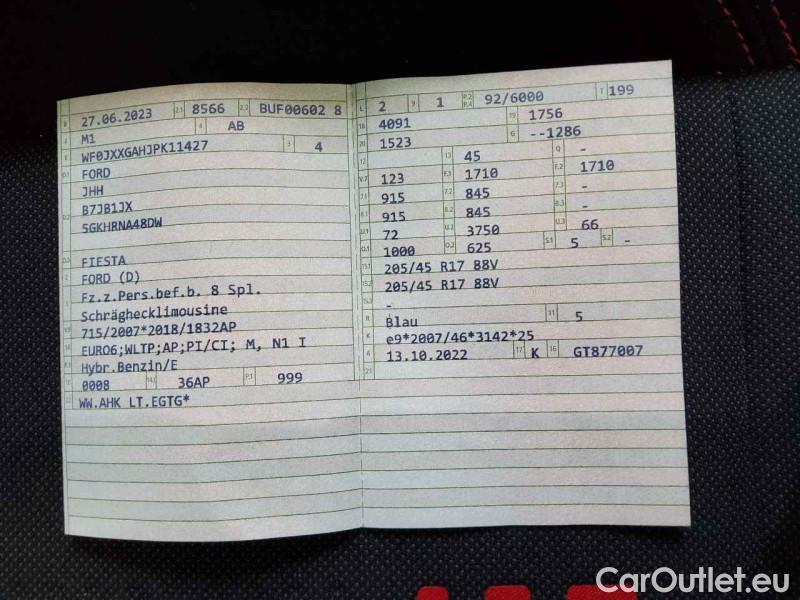 B 27.06.2023 2.1 8566 2.2 BUF00602 8
J M1 4 AB
E WF0JXXGAHJPK11427 3 4
D.1 FORD
JHH
D.2 B7JB1JX
5GKHRNA48DW
FIESTA
2 FORD (D)
5 Fz.z.Pers.bef.b. 8 Spl.
Schräghecklimousine
V.9 715/2007*2018/1832AP
14 EURO6;WLTP;AP;PI/CI; M, N1 I
P.3 Hybr.Benzin/E
10 0008 14.1 36AP P.1 999
22 WW.AHK LT.EGTG*
L 2 9 1 P.2 P.4 92/6000 T 199
18 4091 19 1756
20 1523 G --1286
12 13 45 Q -
V.7 123 F.1 1710 F.2 1710
7.1 915 7.2 845 7.3 -
8.1 915 8.2 845 8.3 -
U.1 72 U.2 3750 U.3 66
O.1 1000 O.2 625 S.1 5 S.2 -
15.1 205/45 R17 88V
15.2 205/45 R17 88V
15.3 -
R Blau 11 5
K e9*2007/46*3142*25
6 13.10.2022 17 K 16 GT877007
21
CarOutlet.eu